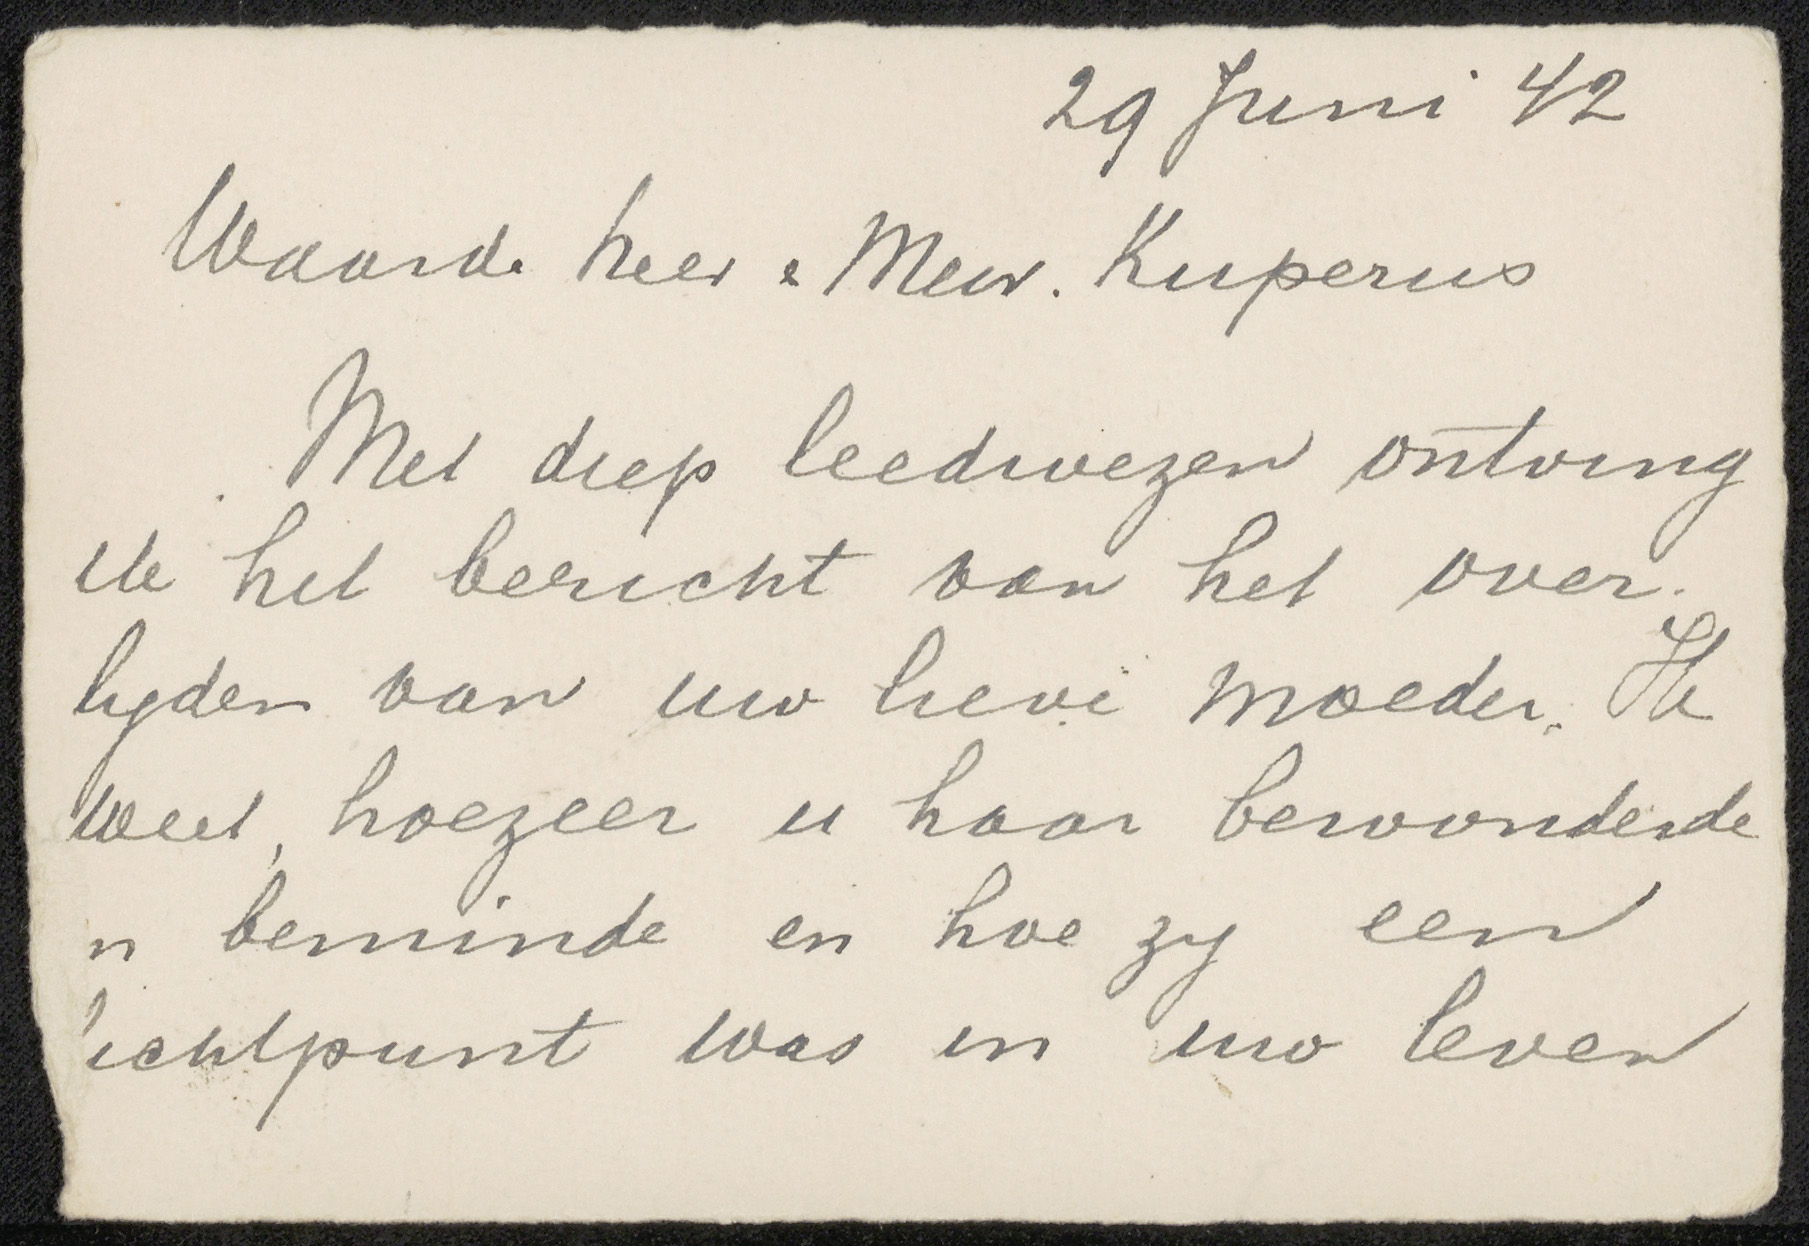 29 Juni 42
Waarde heer & Mevr. Kuperus
Met diep leedwezen ontving
ik het bericht van het over-
lyden van uw lieve moeder. Ik
weet, hoezeer u haar bewonderde
n beminde en hoe zy een
lichtpunt was in uw leven